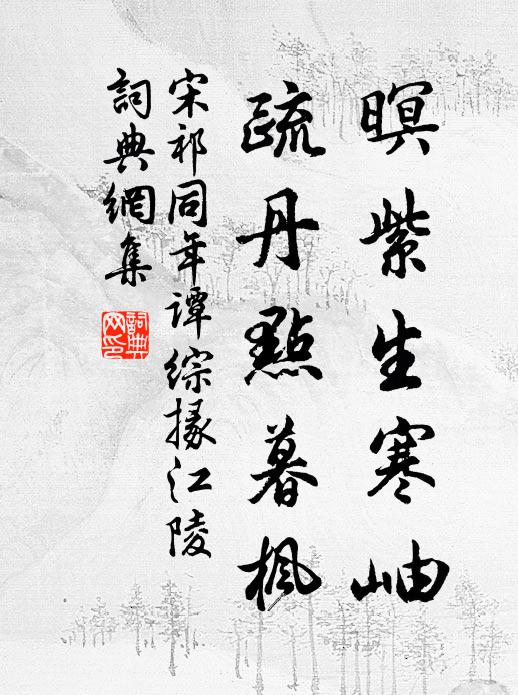 暝紫生寒岫
疏丹點暮楓
宋祁同年譚綜掾江陵
詞典網集
詞典
网印